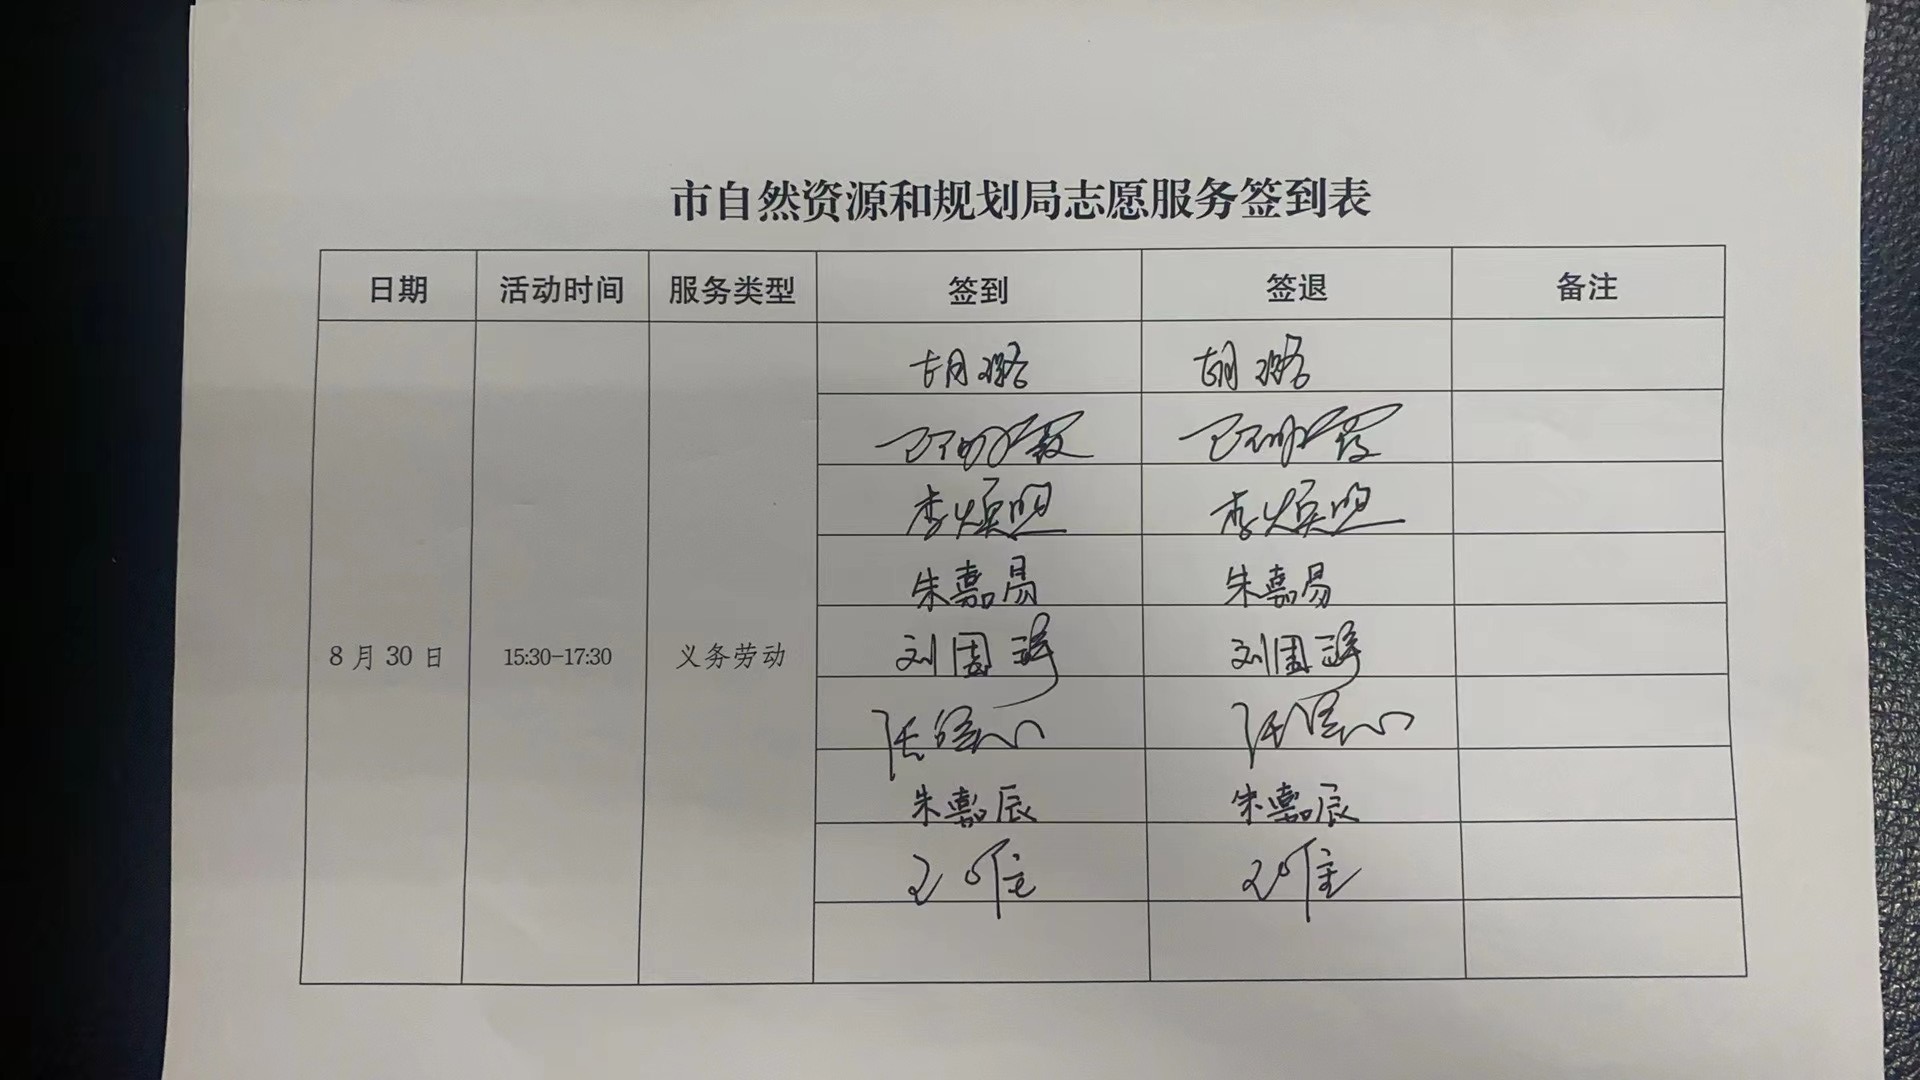 市自然资源和规划局志愿服务签到表
日期 活动时间 服务类型 签到 签退 备注
胡潞 胡潞
李煊照 李煊照
朱嘉易 朱嘉易
8月30日 15:30-17:30 义务劳动 刘国 刘国
朱嘉辰 朱嘉辰